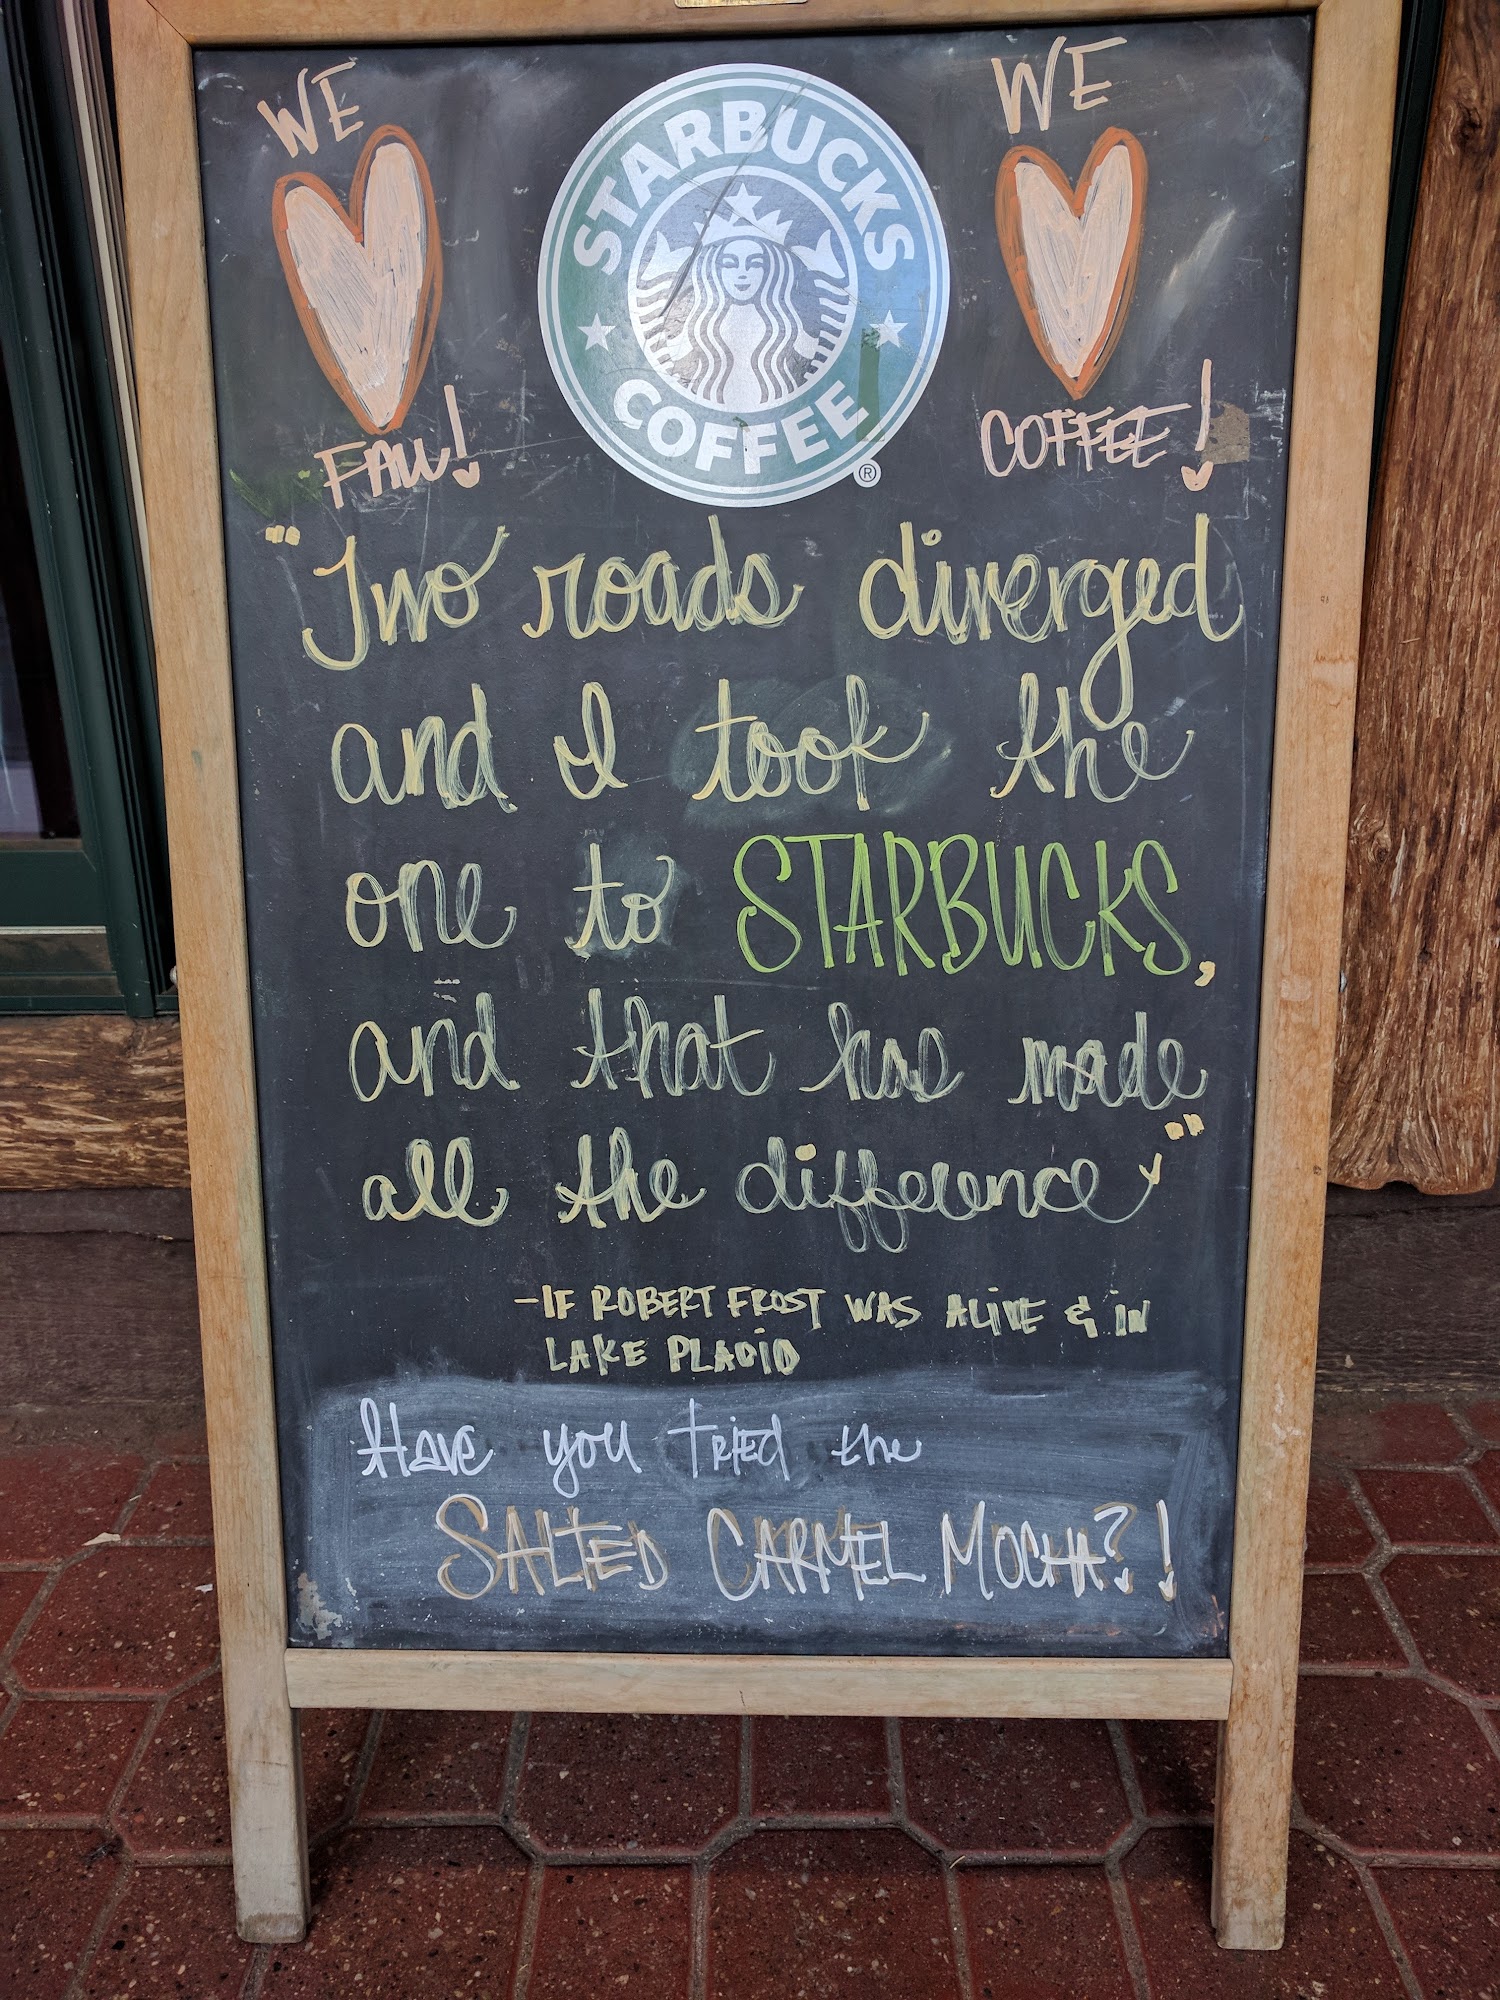 WE
FALL!
STARBUCKS
COFFEE
®
WE
COFFEE!
"Two roads diverged
and I took the
one to STARBUCKS,
and that has made
all the difference"
-IF ROBERT FROST WAS ALIVE & IN
LAKE PLACID
Have you TRIED the
SALTED CARMEL MOCHA?!